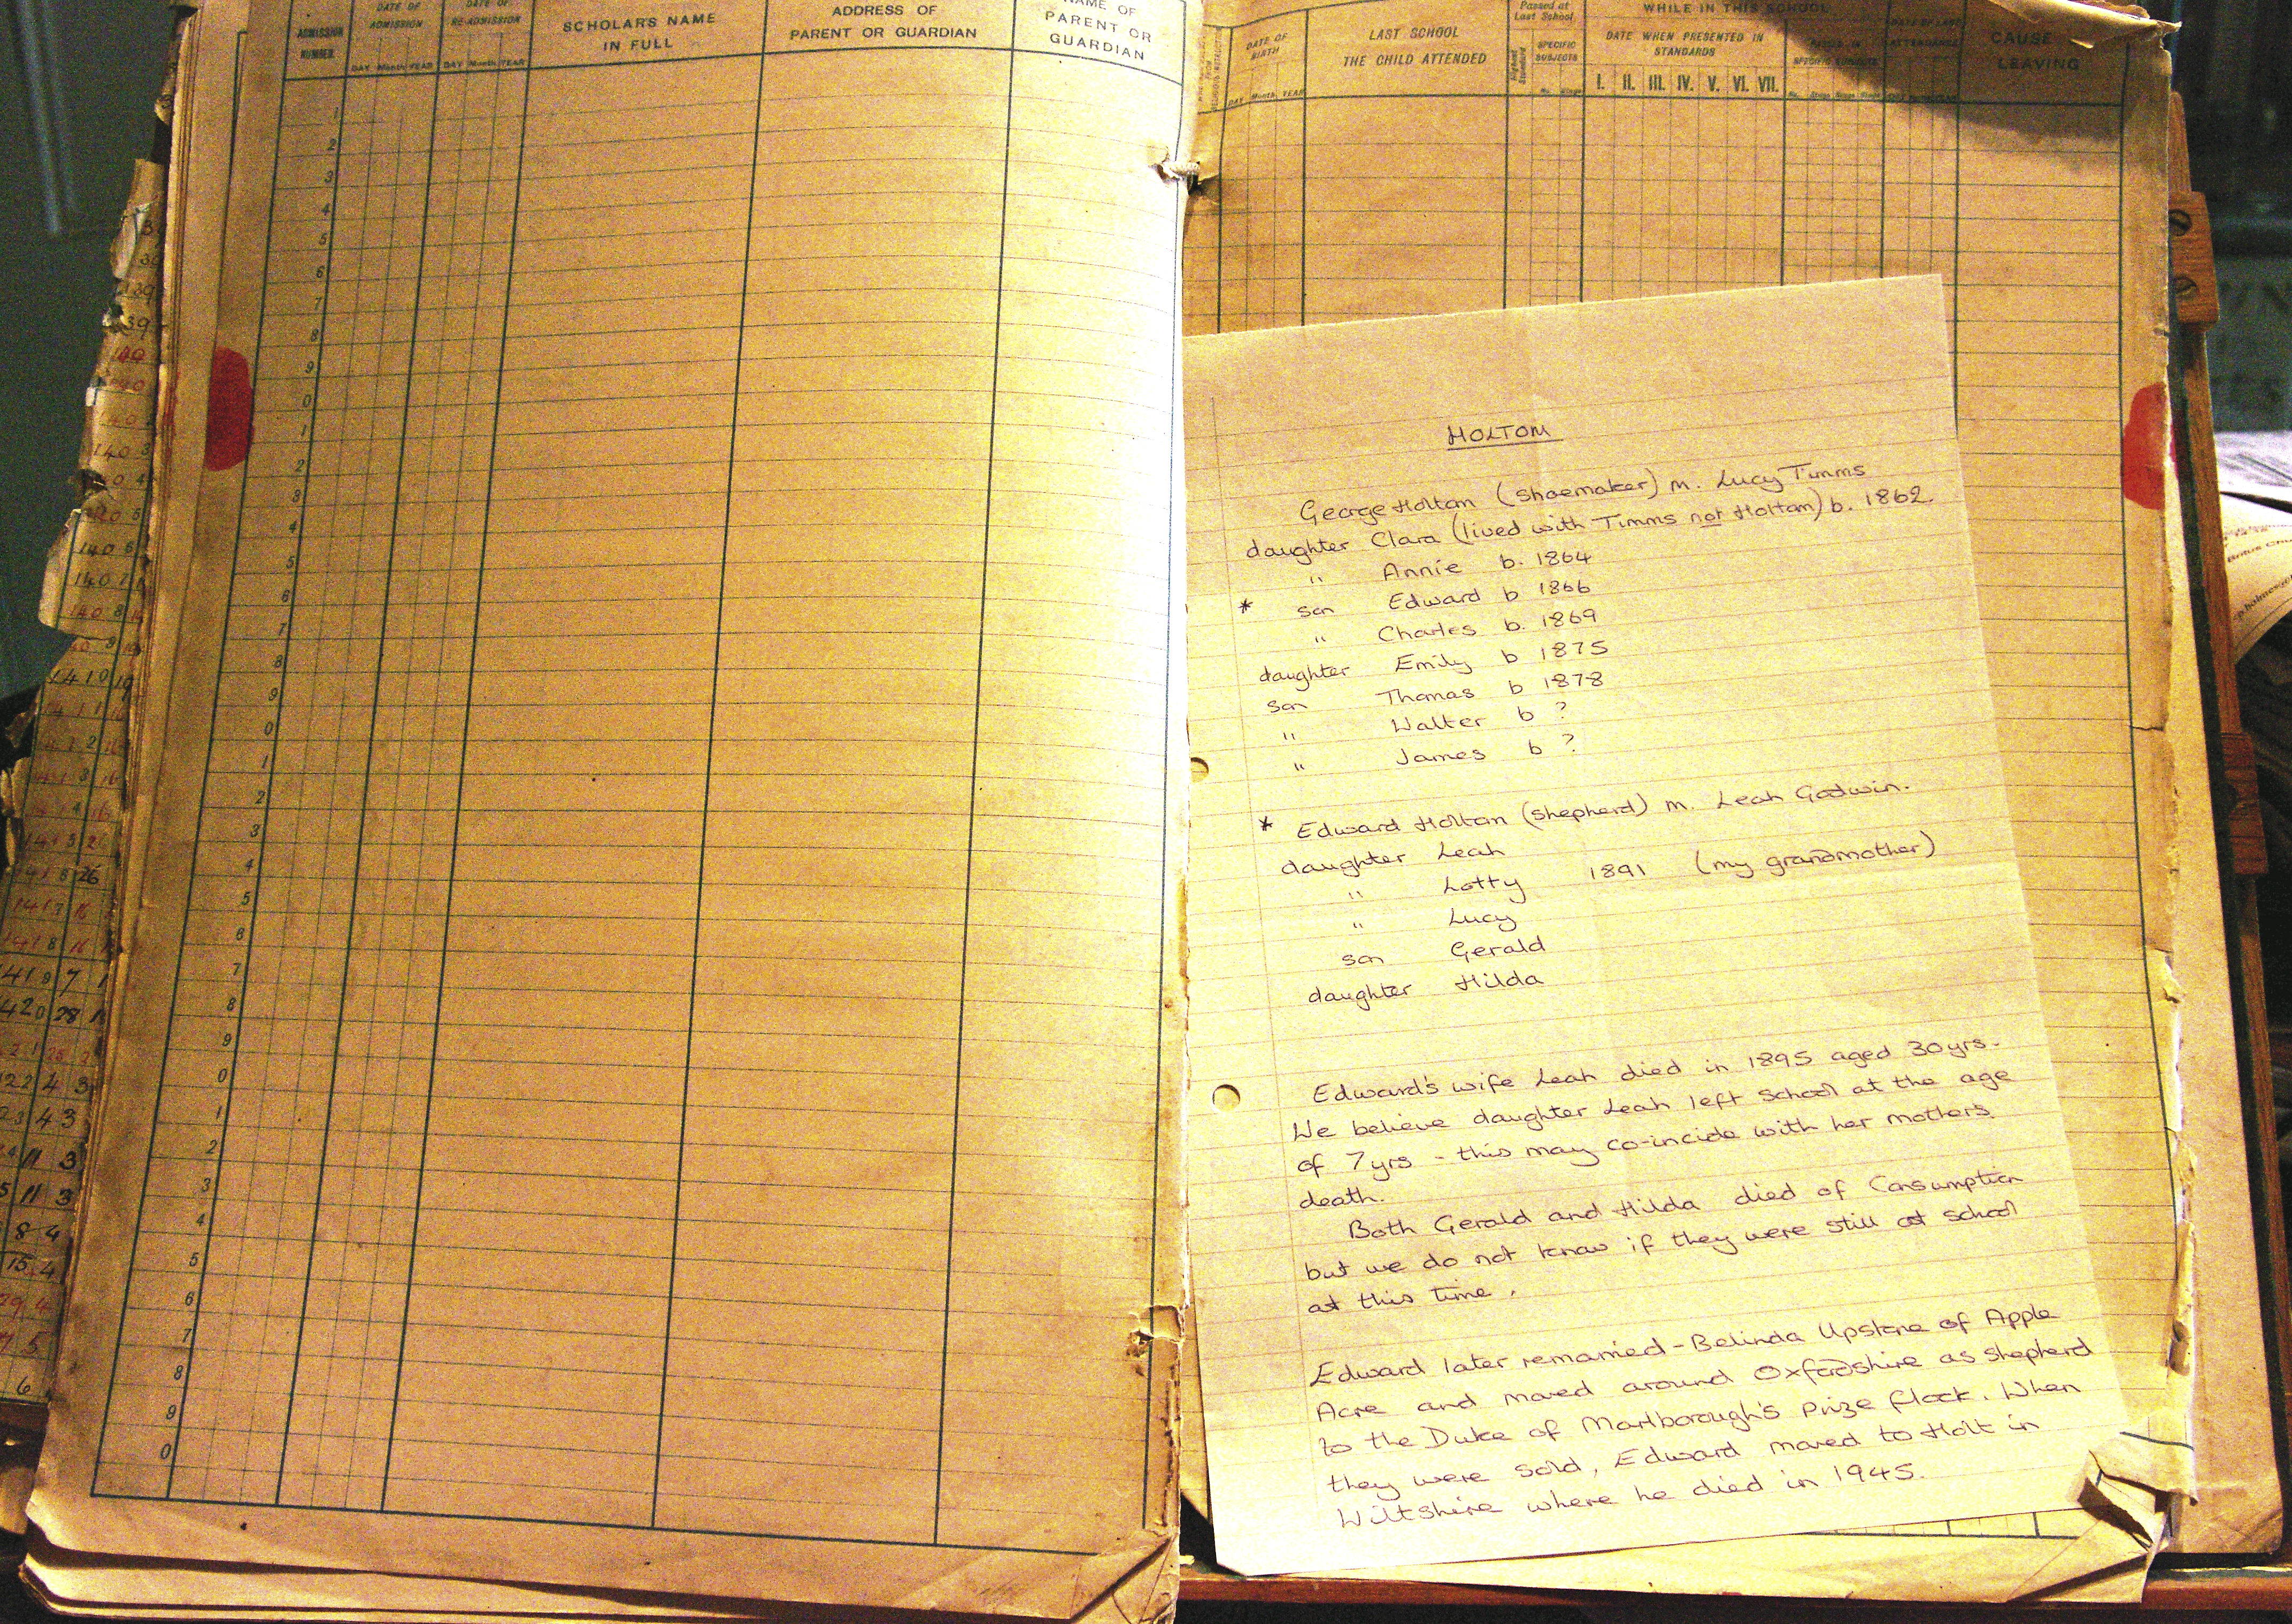 ADMISSION NUMBER
DATE OF ADMISSION
DAY Month YEAR
DATE OF RE-ADMISSION
DAY Month YEAR
SCHOLAR'S NAME
IN FULL
ADDRESS OF
PARENT OR GUARDIAN
NAME OF
PARENT OR
GUARDIAN
1
2
3
4
5
6
7
8
9
0
1
2
3
4
5
6
7
8
9
0
1
2
3
4
5
6
7
8
9
0
1
2
3
4
5
6
7
8
9
0
DATE OF
BIRTH
DAY Month YEAR
LAST SCHOOL
THE CHILD ATTENDED
Passed at
Last School
Highest Standard
SPECIFIC
SUBJECTS
No. Stage
WHILE IN THIS SCHOOL
DATE WHEN PRESENTED IN
STANDARDS
I. II. III. IV. V. VI. VII.
DATE OF LAST
ATTENDANCE
CAUSE
LEAVING
HOLTOM
George Holtom (shoemaker) m. Lucy Timms
daughter Clara (lived with Timms not Holtom) b. 1862.
" Annie b. 1864
* son Edward b 1866
" Charles b. 1869
daughter Emily b 1875
son Thomas b 1878
" Walter b ?
" James b ?
* Edward Holtom (shepherd) m. Leah Godwin.
daughter Leah
" Lotty 1891 (my grandmother)
" Lucy
son Gerald
daughter Hilda
Edward's wife Leah died in 1895 aged 30yrs.
We believe daughter Leah left School at the age
of 7yrs - this may co-incide with her mothers
death.
Both Gerald and Hilda died of Consumption
but we do not know if they were still at school
at this time.
Edward later remarried - Belinda Upstone of Apple
Acre and moved around Oxfordshire as shepherd
to the Duke of Marlborough's prize flock. When
they were sold, Edward moved to Holt in
Wiltshire where he died in 1945.